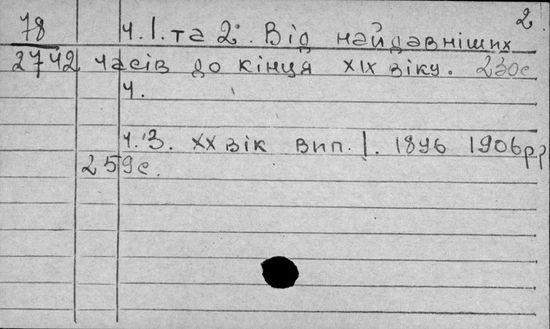 2
78 ч. 1. та 2. Від найдавніших
2742 часів до кінця XIX віку. 230с
ч.
ч. 3. XX вік вип. 1. 1896 1906рр
259с.